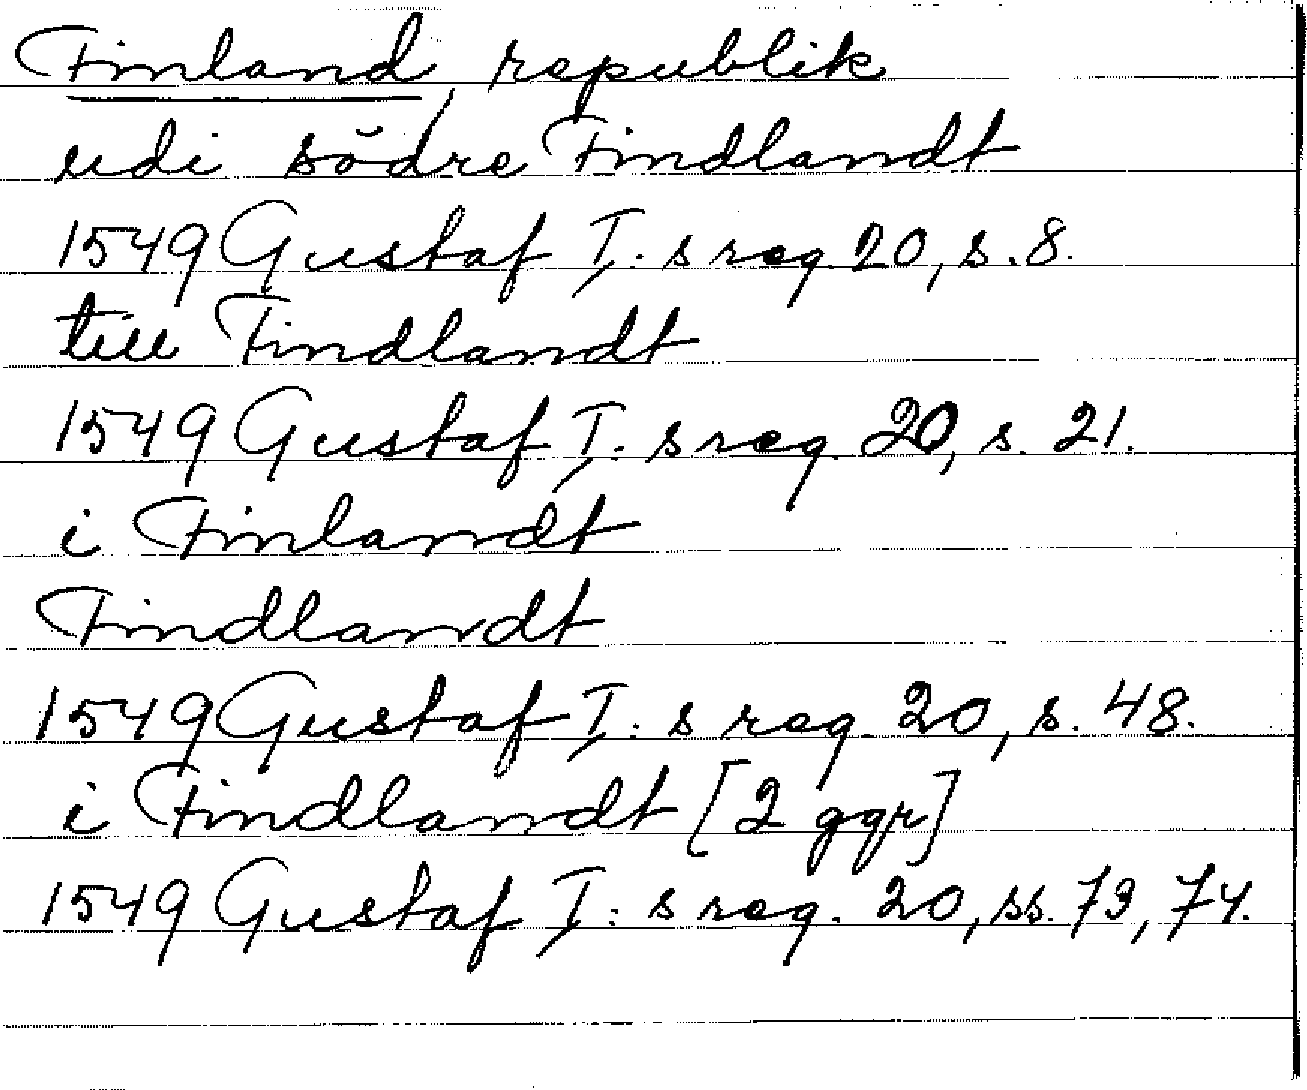 Finland, republik
udi södre Findlandt
1549 Gustaf I:s reg. 20, s. 8.
till Findlandt
1549 Gustaf I:s reg. 20, s. 21.
i Finlandt
Findlandt
1549 Gustaf I:s reg. 20, s. 48.
i Findlandt [2 ggr]
1549 Gustaf I:s reg. 20, ss. 73, 74.